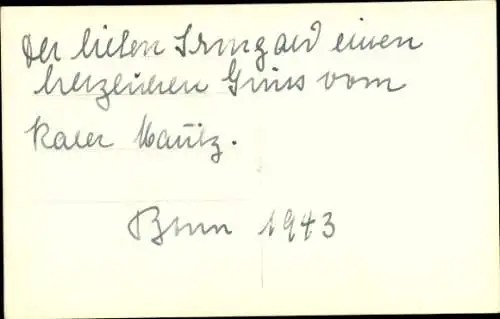 Der lieben Irmgard einen
herzlichen Gruss vom
Kater Mautz.
Bonn 1943